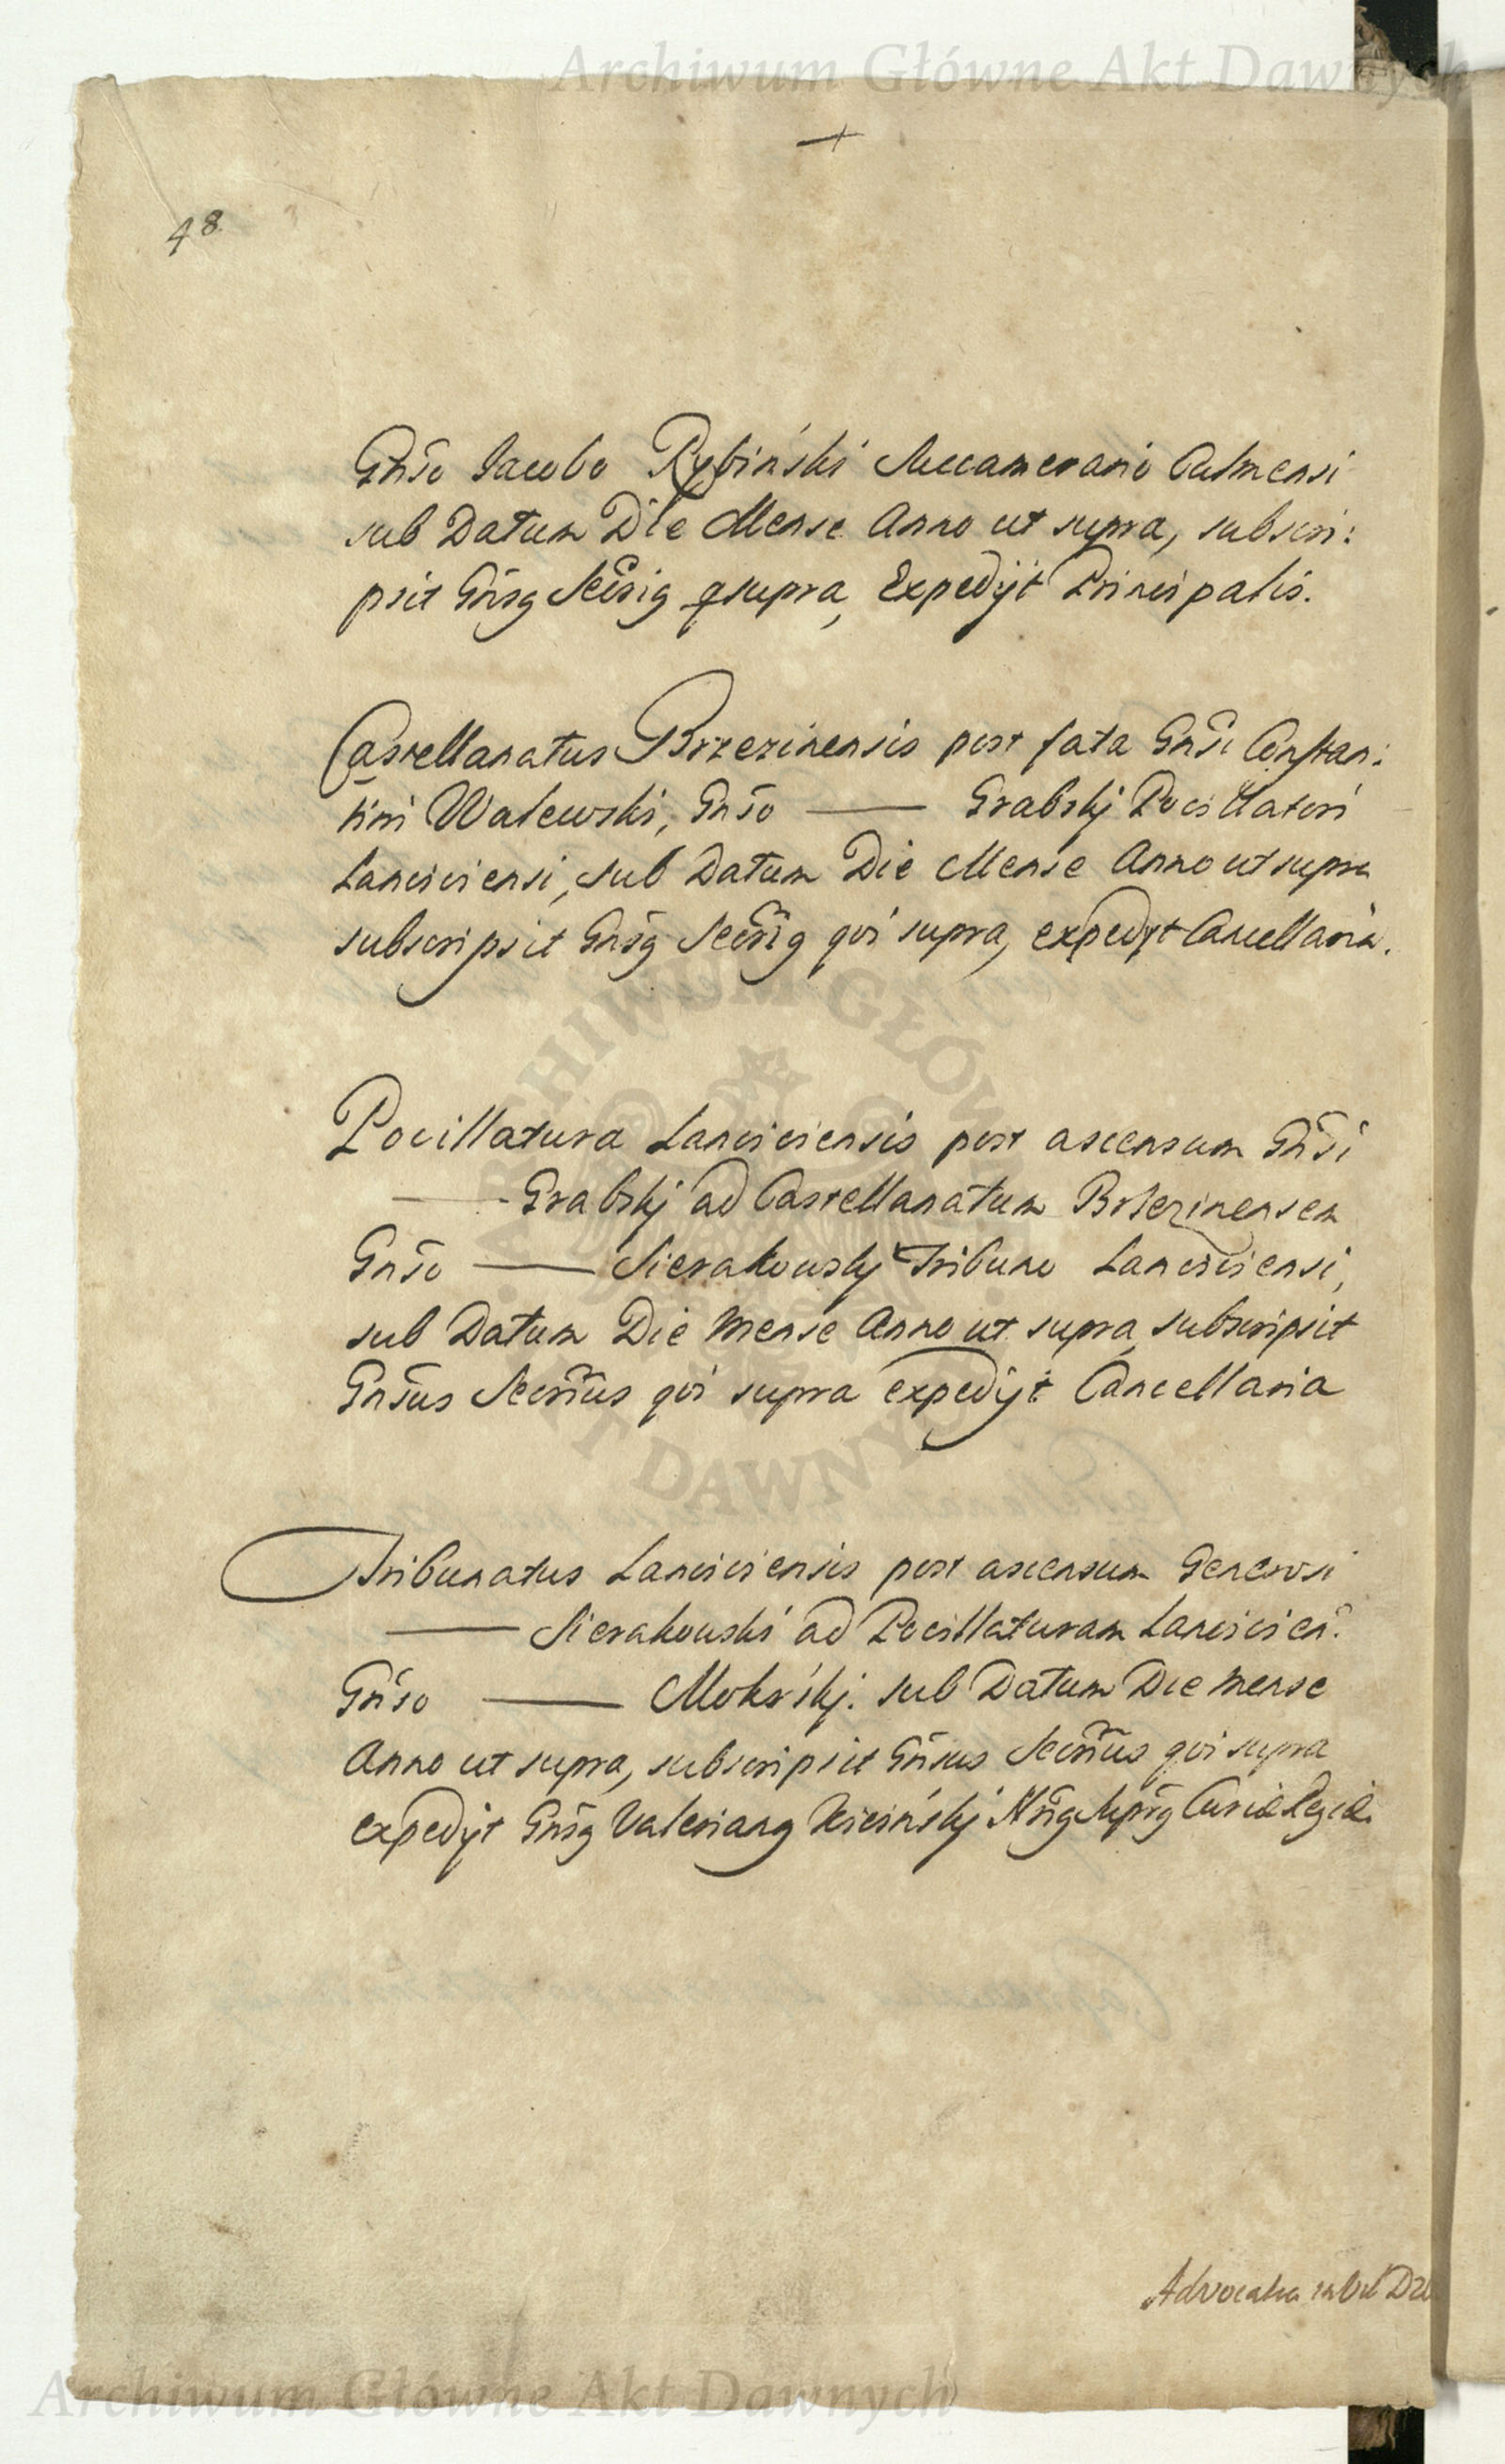 Archiwum Główne Akt Dawnych
48
Gnso Jacobo Rybinski Succamerario Culmensi
sub Datum Die Mense Anno ut supra, subscri:
psit Gnsg Secrig qsupra, Expedijt Principalis.
Castellanatus Brzezinensis post fata Gnsi Constan:
tini Walewski, Gnso — Grabskj Pocillatori
Lanciciensi, sub Datum Die Mense Anno ut supra
subscripsit Gnsg Secrig qvi supra, expedyt Cancellaria.
Pocillatura Lanciciensis post ascensum Gnsi
— Grabskj ad Castellanatum Brzezinensem
Gnso — Sierakowskj Tribuno Lanciciensi,
sub Datum Die Mense Anno ut supra subscripsit
Gnsus Secrius qvi supra expedijt Cancellaria
Tribunatus Lanciciensis post ascensum Generosi
— Sierakowski ad Pocillaturam Lancicien:
Gnso — Mokrskj. sub Datum Die Mense
Anno ut supra, subscripsit Gnsus Secrius qvi supra
expedyt Gnsg Valeriang Kicinskj Curiæ Regiæ.
Advocatia
ARCHIWUM GŁÓWNE AKT DAWNYCH
Archiwum Główne Akt Dawnych